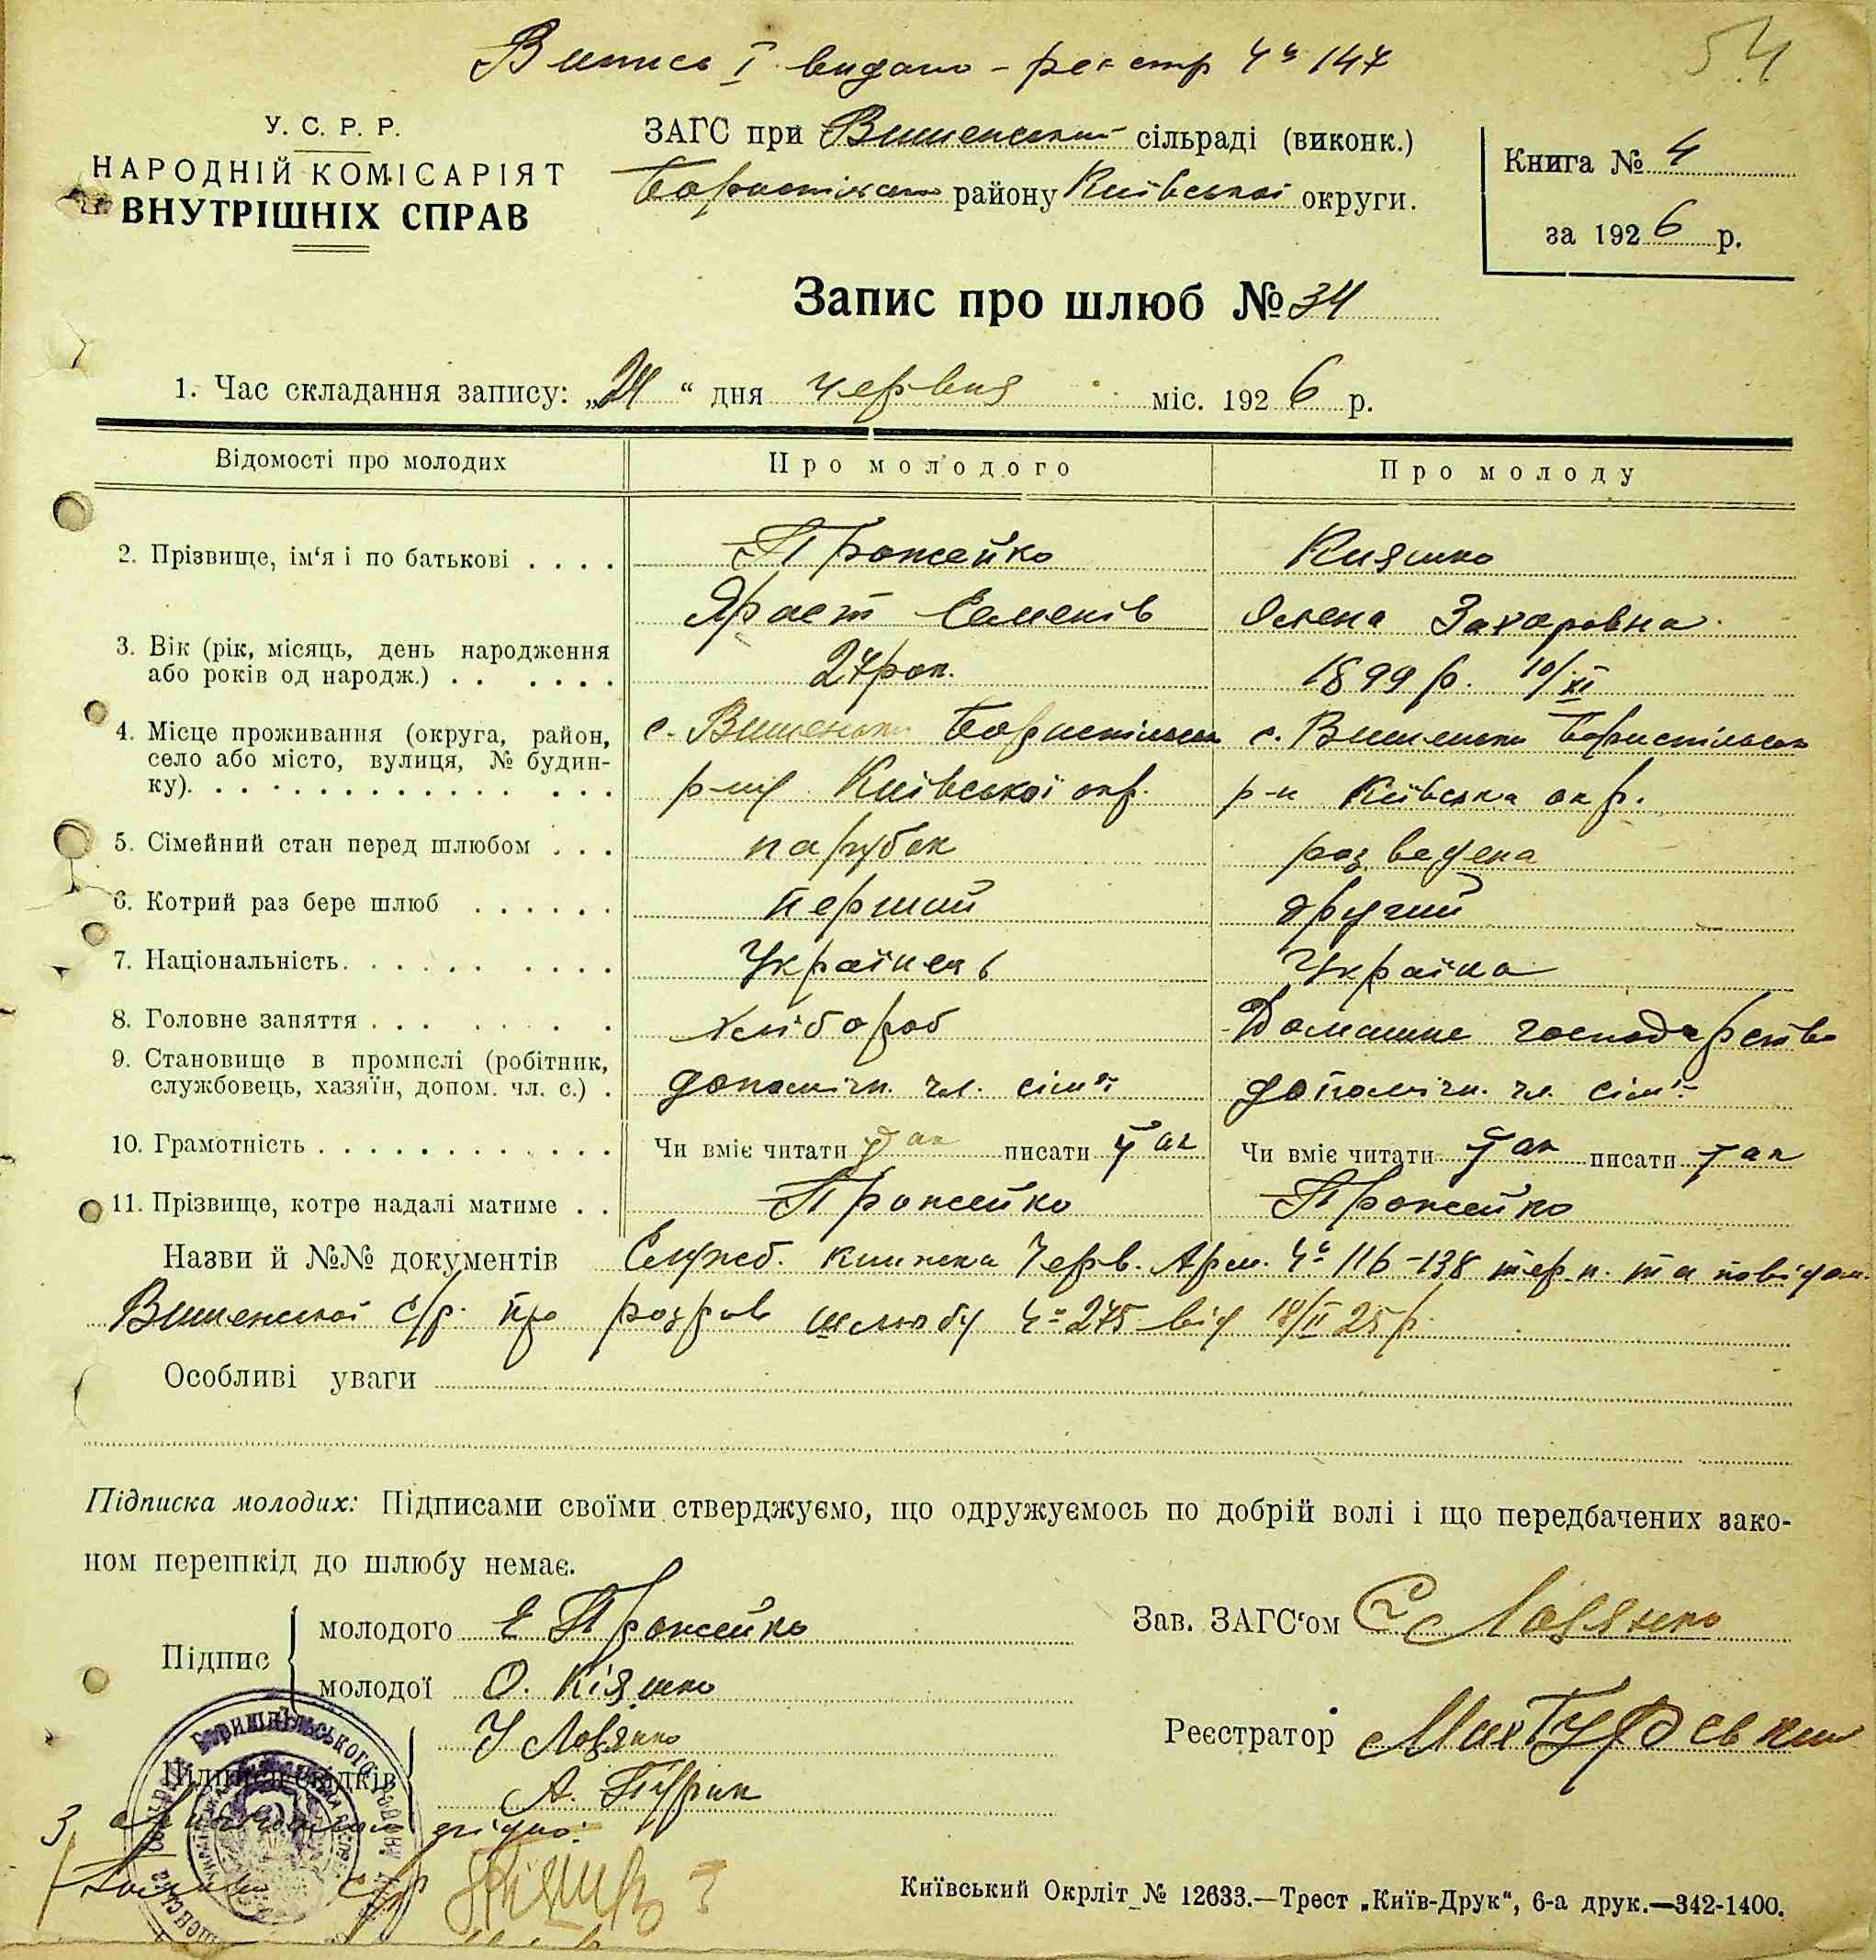 Випись I видано - реєстр Ч° 147
54
У. С. Р. Р.
НАРОДНІЙ КОМІСАРІЯТ
ВНУТРІШНІХ СПРАВ
ЗАГС при Вишенській сільраді (виконк.)
району Київської округи.
Книга № 4
за 1926 р.
Запис про шлюб № 34
1. Час складання запису: „24“ дня червня міс. 1926 р.
Відомості про молодих Про молодого Про молоду
2. Прізвище, ім‘я і по батькові . . . . Прожейко Кияшко
Яраст Семенів Олена Захаровна
3. Вік (рік, місяць, день народження
або років од народж.) . . . . . . 27 рок. 1899 р. 10/XI
4. Місце проживання (округа, район,
село або місто, вулиця, № будин-
ку). . . . . . . . . . . . . . . .
с. Вишеньки Бориспільськ с. Вишеньки Бориспільськ
р-ну Київської окр. р-н Київська окр.
5. Сімейний стан перед шлюбом . . . парубок розведена
6. Котрий раз бере шлюб . . . . . . перший другий
7. Національність. . . . . . . . . . Українець Україна
8. Головне заняття . . . . . . . . хлібороб Домашнє господарство
9. Становище в промислі (робітник,
службовець, хазяїн, допом. чл. с.) . допоміжн. чл. сім'ї допоміжн. чл. сім'ї
10. Грамотність . . . . . . . . . . . . Чи вміє читати так писати так Чи вміє читати так писати так
11. Прізвище, котре надалі матиме . . Прожейко Прожейко
Назви й №№ документів Служб. книжка Черв. Арм. Ч° 116-138 тер. п. та повідом.
Вишенської с/р. про розрив шлюбу Ч° 275 від 18/II 25 р.
Особливі уваги
Підписка молодих: Підписами своїми стверджуємо, що одружуємось по добрій волі і що передбачених зако-
ном перешкід до шлюбу немає.
Підпис
молодого Е Прожейко
молодої О. Кіяшко
Зав. ЗАГС‘ом
Підписи свідків
А.
Реєстратор
З згідно:
с/р
Київський Окрліт № 12633.—Трест „Київ-Друк“, 6-а друк.—342-1400.